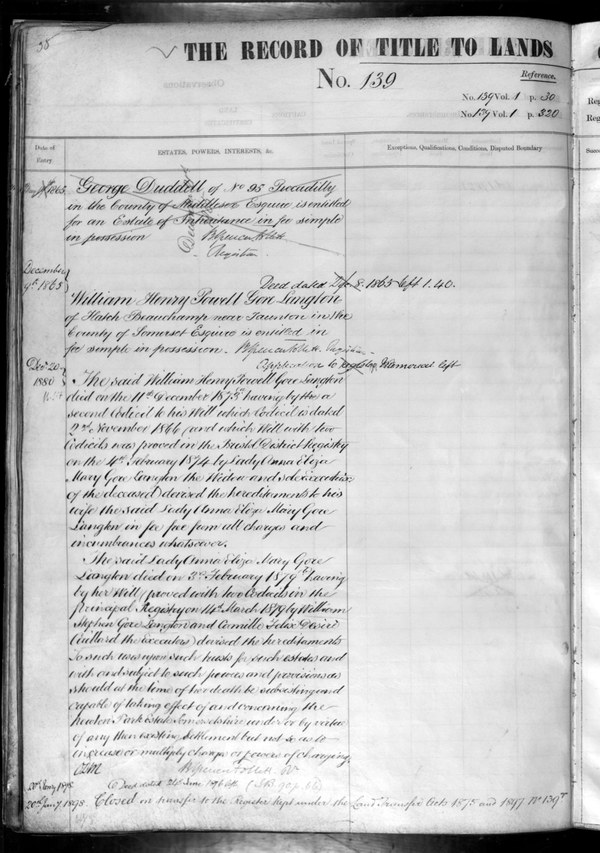 38
THE RECORD OF TITLE TO LANDS
No. 139
Reference.
No. 139 Vol. 1 p. 30
No. 139 Vol. 1 p. 320
Date of Entry
ESTATES, POWERS, INTERESTS, &c.
Exceptions, Qualifications, Conditions, Disputed Boundary
1865 George Duddell of No 95 Piccadilly
in the County of Middlesex Esquire is entitled
for an Estate of Inheritance in fee simple
in possession
Registrar
December 9th 1865
Deed dated 8 1865 left 1.40.
William Henry Powell Gore Langton
of Hatch Beauchamp near Taunton in the
County of Somerset Esquire is entitled in
fee simple in possession. Registrar
Decr 20 1880
Application to Register, Memorial left
The said William Henry Powell Gore Langton
died on the 11th December 1873 having by the a
second Codicil to his Will which Codicil is dated
2nd November 1866 (and which Will with two
Codicils was proved in the Bristol District Registry
on the 4th February 1874 by Lady Anna Eliza
Mary Gore Langton the Widow and sole Executrix
of the deceased) devised the hereditaments to his
wife the said Lady Anna Eliza Mary Gore
Langton in fee free from all charges and
incumbrances whatsoever.
The said Lady Anna Eliza Mary Gore
Langton died on 3rd February 1879 having
by her Will (proved with two Codicils in the
Principal Registry on 14th March 1879 by William
Stephen Gore Langton and Camille Felix Désiré
Caillard the executors) devised the hereditaments
to such uses upon such trusts for such estates and
with and subject to such powers and provisions as
should at the time of her death be subsisting and
capable of taking effect of and concerning the
Newton Park Estate Somersetshire under or by virtue
of any then existing settlement but not so as to
increase or multiply charges or powers of charging.
20th Jany 1898 Deed dated June 1896
20th Jany 1898. Closed on transfer to the Register kept under the Land Transfer Acts 1875 and 1897 No 139